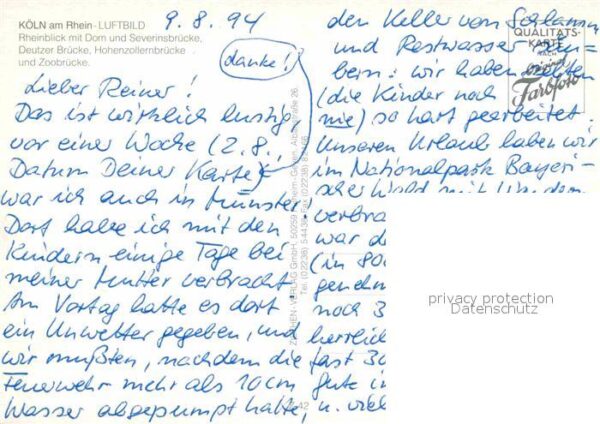 KÖLN am Rhein - LUFTBILD
Rheinblick mit Dom und Severinsbrücke,
Deutzer Brücke, Hohenzollernbrücke
und Zoobrücke.
9.8.94
danke!
Lieber Reiner!
Das ist wirklich lustig,
vor einer Woche (2.8.
Datum Deiner Karte)
war ich auch in Münster!
Dort habe ich mit den
Kindern einige Tage bei
meiner Mutter verbracht
Am Vortag hatte es dort
ein Unwetter gegeben, und
wir mußten, nachdem die
Feuerwehr mehr als 10cm
Wasser abgepumpt hatte,
den Keller von Schlamm
und Restwasser säu-
bern: wir haben selten
(die Kinder noch
nie) so hart gearbeitet.
Unseren Urlaub haben wir
im Nationalpark Bayeri-
scher Wald mit
verbra
war d
(in 80
geneh
noch 3
herrlich
fast 30
gute in
u. viel
QUALITÄTS-
KARTE
NACH
original
Farbfoto
privacy protection
Datenschutz